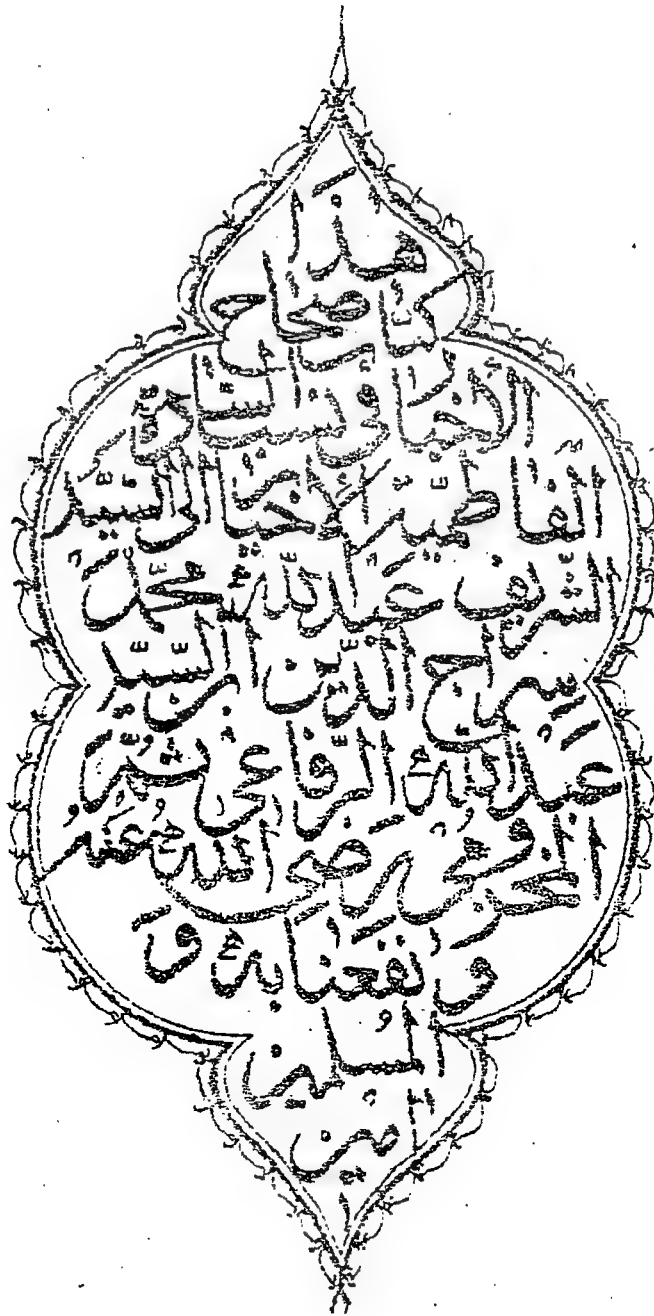 هَذَا
كِتَابُ صِحَاحُ
الْأَخْبَارِ فِي نَسَبِ السَّادَةِ
الْفَاطِمِيَّةِ الْأَخْيَارِ السَّيِّدِ
الشَّرِيفِ عَبْدِ اللهِ مُحَمَّدْ
سِرَاجِ الدِّينِ ابْنِ السَّيِّدِ
عَبْدِ اللهِ الرِّفَاعِي ثُمَّ
الْمَخْزُومِيّ رَضِيَ اللهُ عَنْهُ
وَنَفَعَنَا بِهِ وَ
الْمُسْلِمِينَ
امِين